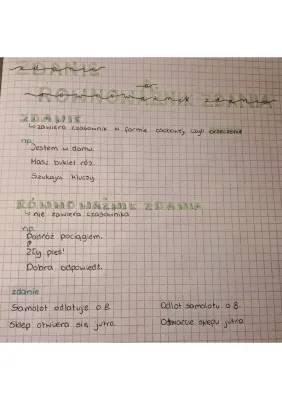 ZDANIE
zdanie
a
RÓWNOWAŻNIK ZDANIA
równoważnik zdania
ZDANIE
↳ zawiera czasownik w formie osobowej, czyli orzeczenie
np.
Jestem w domu.
Masz bukiet róż.
Szukają kluczy.
RÓWNOWAŻNIK ZDANIA
↳ nie zawiera czasownika
np.
Podróż pociągiem.
Zły pies!
Dobra odpowiedź.
zdanie
Samolot odlatuje o 8. Odlot samolotu o 8.
Sklep otwiera się jutro. Otwarcie sklepu jutro.